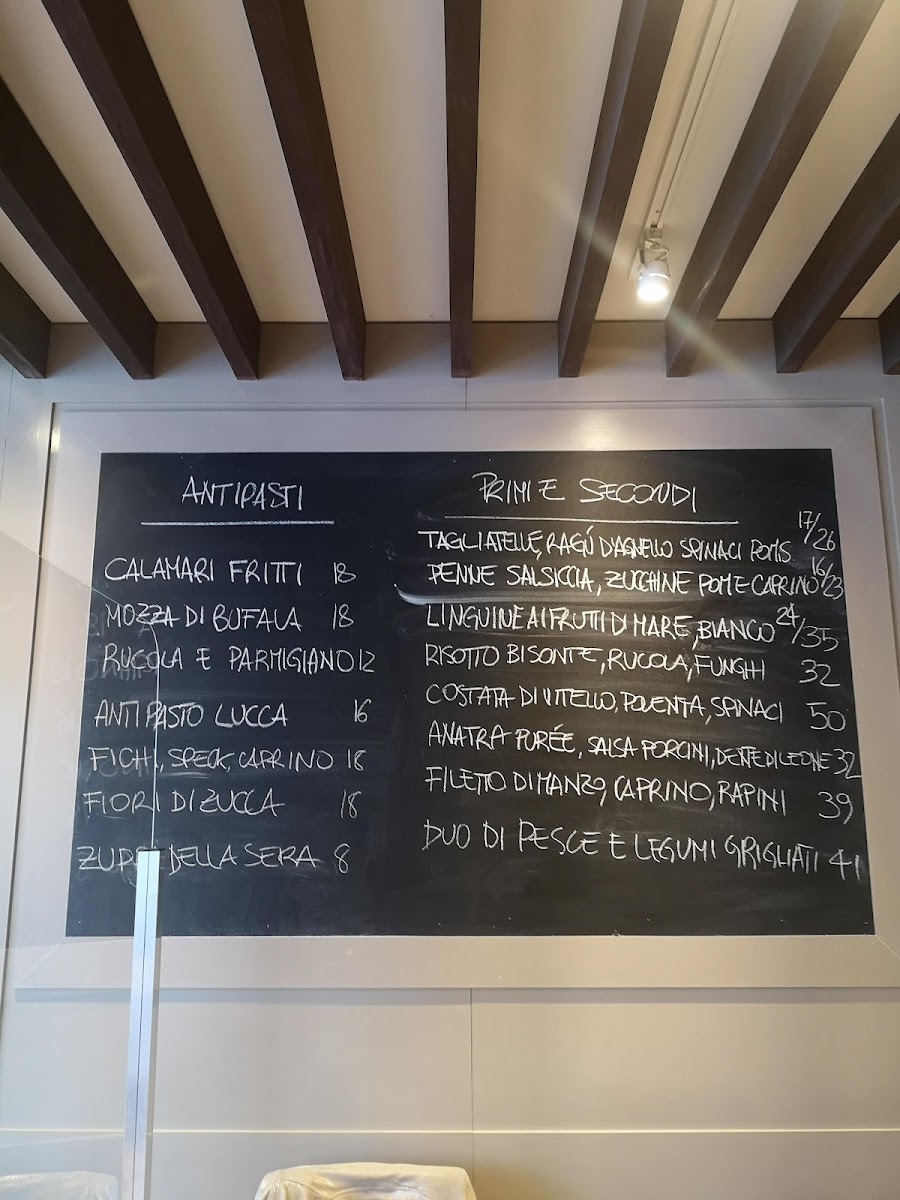 ANTIPASTI
CALAMARI FRITTI 18
MOZZA DI BUFALA 18
RUCOLA E PARMIGIANO 12
ANTIPASTO LUCCA 16
FICHI, SPECK, CAPRINO 18
FIORI DI ZUCCA 18
ZUPPA DELLA SERA 8
PRIMI E SECONDI
TAGLIATELLE, RAGÚ D'AGNELLO SPINACI POMS 17/26
PENNE SALSICCIA, ZUCCHINE POM E CAPRINO 16/23
LINGUINE AI FRUTTI DI MARE, BIANCO 24/35
RISOTTO BISONTE, RUCOLA, FUNGHI 32
COSTATA DI VITELLO, POLENTA, SPINACI 50
ANATRA PURÉE, SALSA PORCINI, DENTE DI LEONE 32
FILETTO DI MANZO, CAPRINO, RAPINI 39
DUO DI PESCE E LEGUMI GRIGLIATI 41